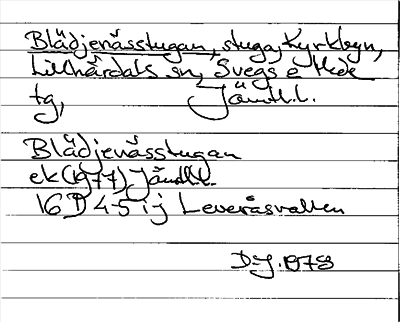 Blädjenåsstugan, stuga, Kyrkbyn,
Lillhärdals sn, Svegs o Hede
tg, Jämtl.l.
Blädjenåsstugan
ek (1977) Jämtl.l.
16D 4-5 ij Leveråsvallen
D-J. 1978